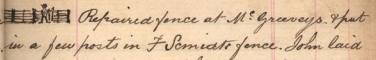 Repaired fence at Mc Greeveys. & put
in a few posts in F Semiats fence. John laid